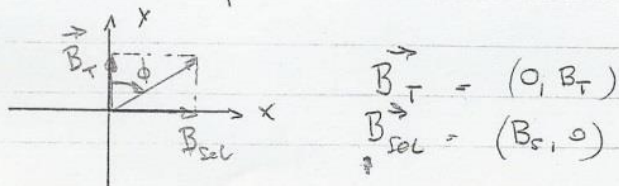 X
B⃗_T φ
X
B⃗_sol
B⃗_T = (0, B_T)
B⃗_sol = (B_s, 0)